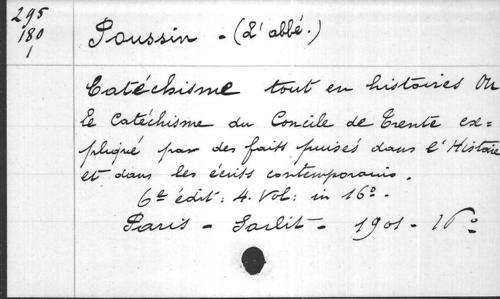 295
180
1
Poussin - (L'abbé.)
Catéchisme tout en histoires Ou
Le Catéchisme du Concile de Trente ex=
pliqué par des faits puisés dans l'Histoire
et dans les écrits contemporains.
6e édit: 4. Vol: in 16°.
Paris - Sarlit - 1901 - 16°